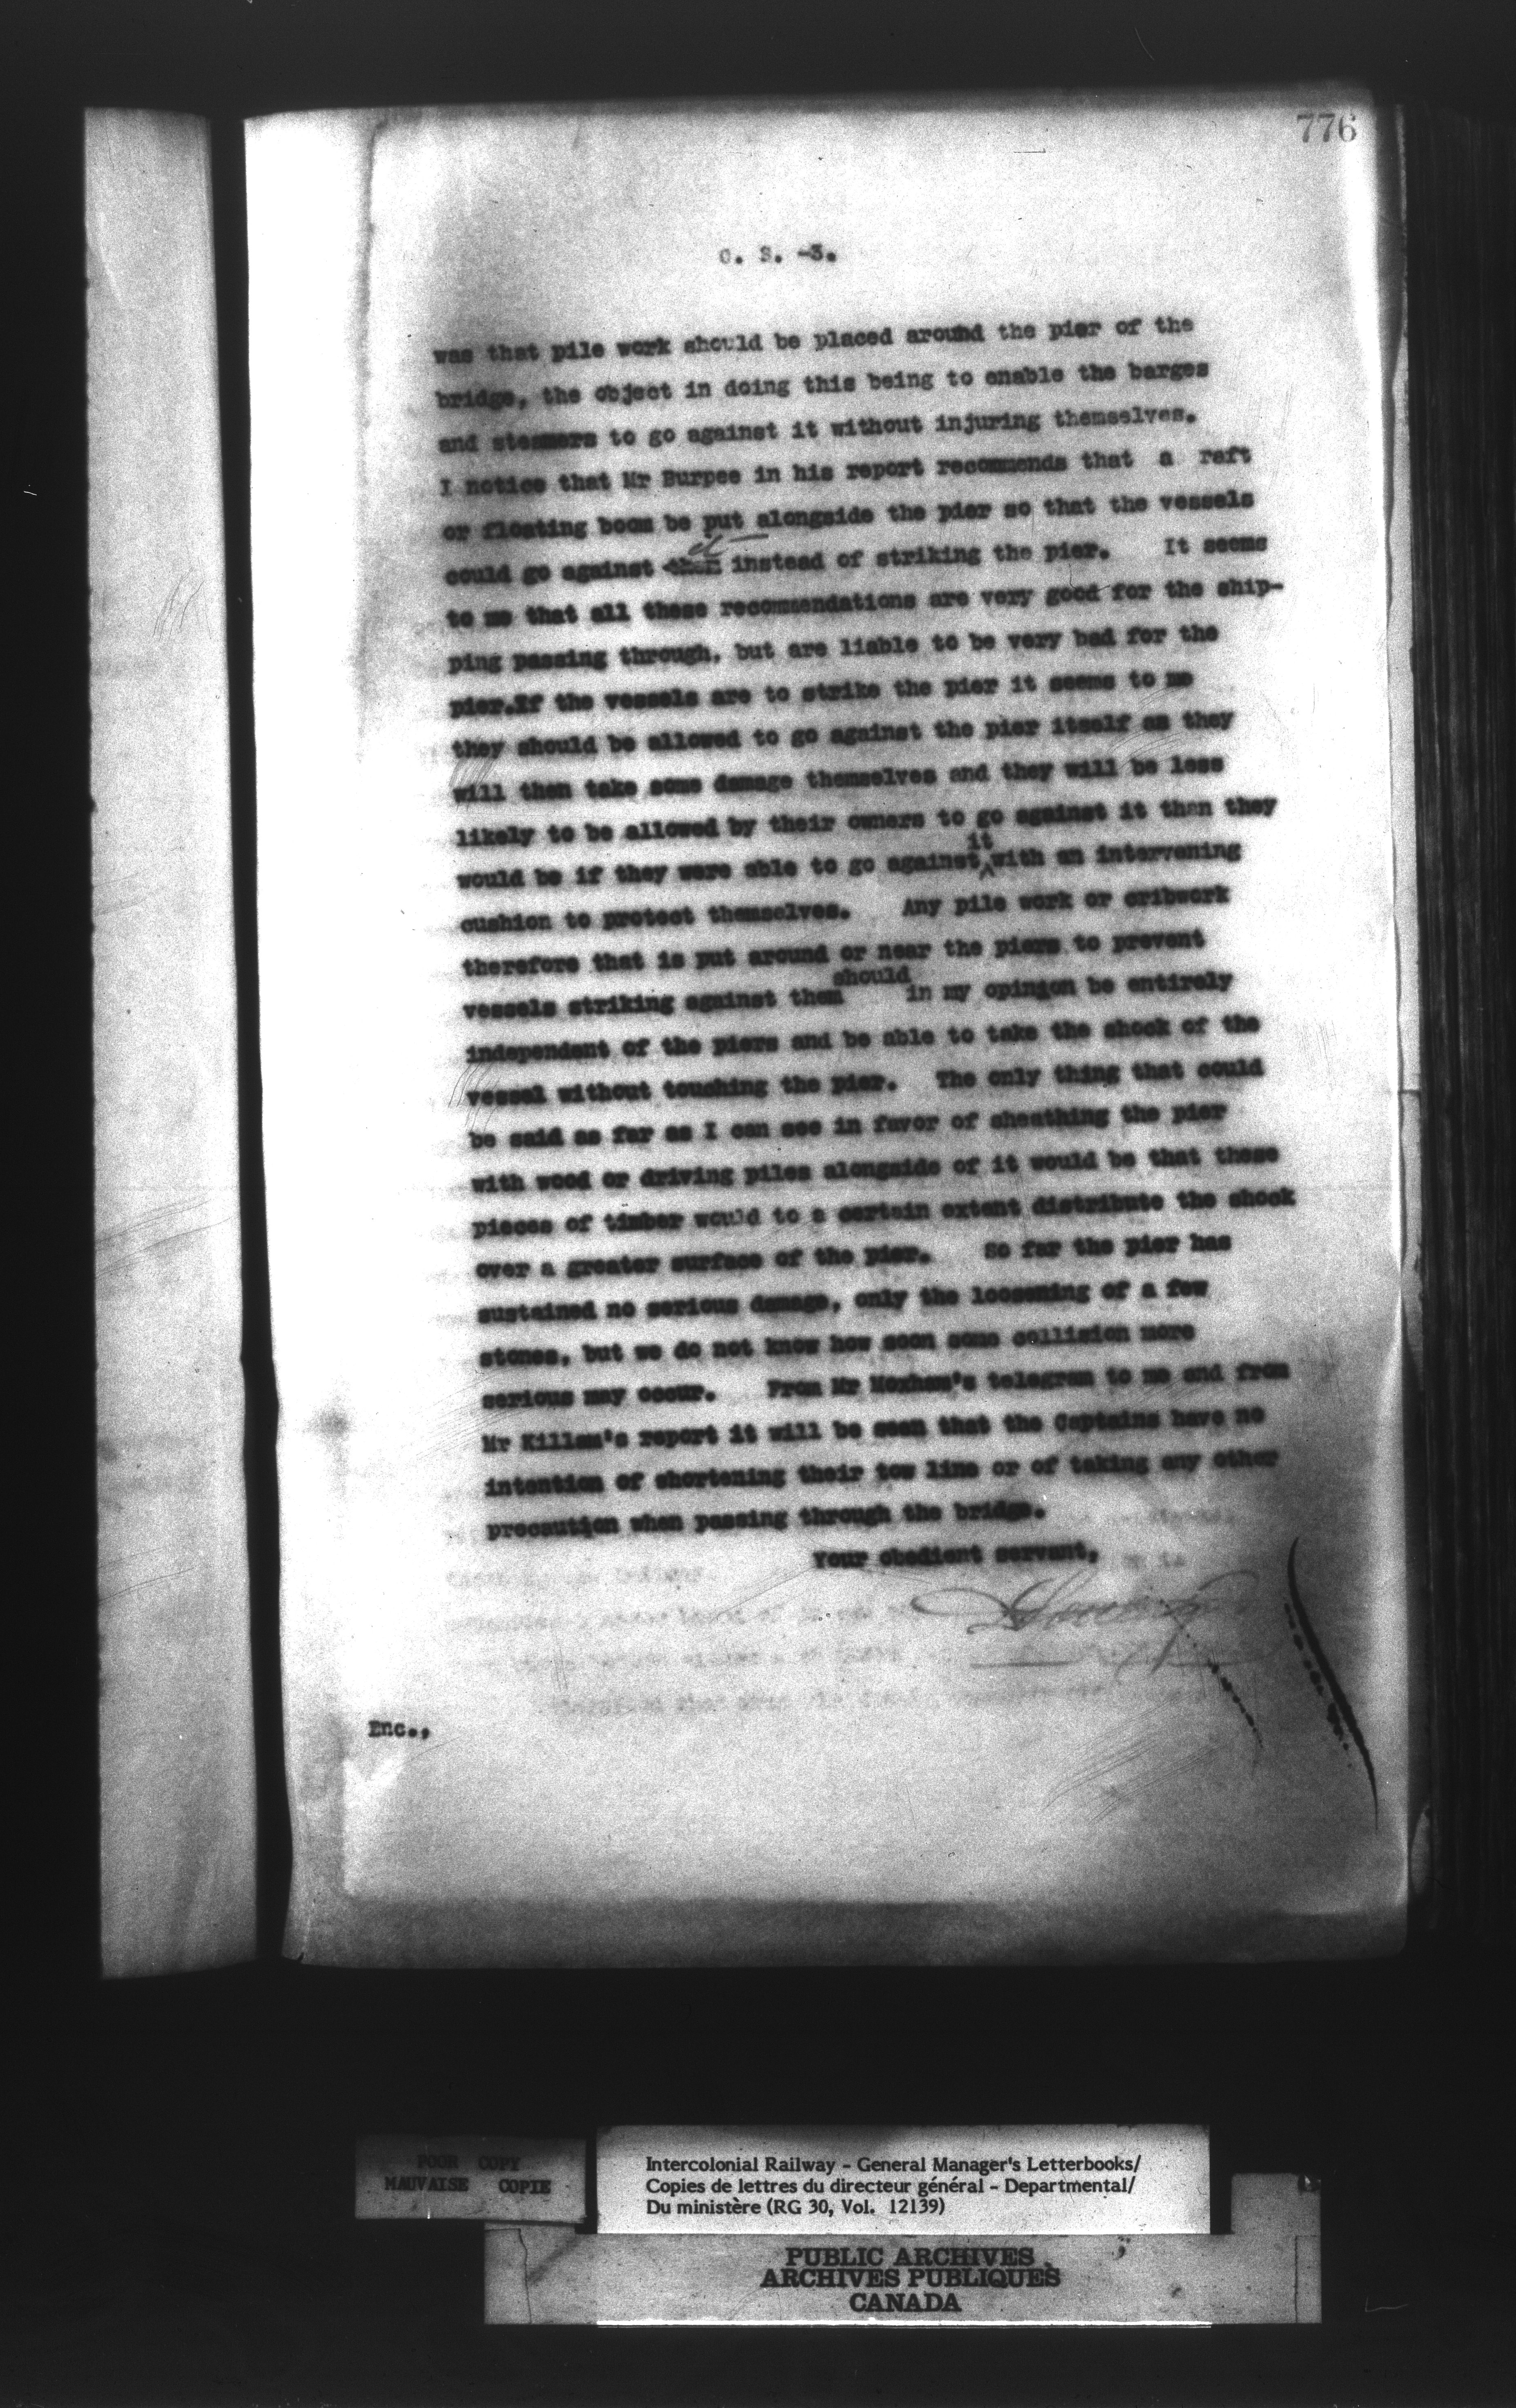 776
C. S. -3.
was that pile work should be placed around the pier of the
bridge, the object in doing this being to enable the barges
and steamers to go against it without injuring themselves.
I notice that Mr Burpee in his report recommends that a raft
or floating boom be put alongside the pier so that the vessels
could go against them it instead of striking the pier. It seems
to me that all these recommendations are very good for the ship-
ping passing through, but are liable to be very bad for the
pier.If the vessels are to strike the pier it seems to me
they should be allowed to go against the pier itself as they
will then take some damage themselves and they will be less
likely to be allowed by their owners to go against it than they
would be if they were able to go against it with an intervening
cushion to protect themselves. Any pile work or cribwork
therefore that is put around or near the piers to prevent
vessels striking against them should in my opinion be entirely
independent of the piers and be able to take the shock of the
vessel without touching the pier. The only thing that could
be said as far as I can see in favor of sheathing the pier
with wood or driving piles alongside of it would be that these
pieces of timber would to a certain extent distribute the shock
over a greater surface of the pier. So far the pier has
sustained no serious damage, only the loosening of a few
stones, but we do not know how soon some collision more
serious may occur. From Mr Moxham's telegram to me and from
Mr Killam's report it will be seen that the Captains have no
intention of shortening their tow line or of taking any other
precaution when passing through the bridge.
Your obedient servant,
Enc.,
POOR COPY
MAUVAISE COPIE
Intercolonial Railway - General Manager's Letterbooks/
Copies de lettres du directeur général - Departmental/
Du ministère (RG 30, Vol. 12139)
PUBLIC ARCHIVES
ARCHIVES PUBLIQUES
CANADA